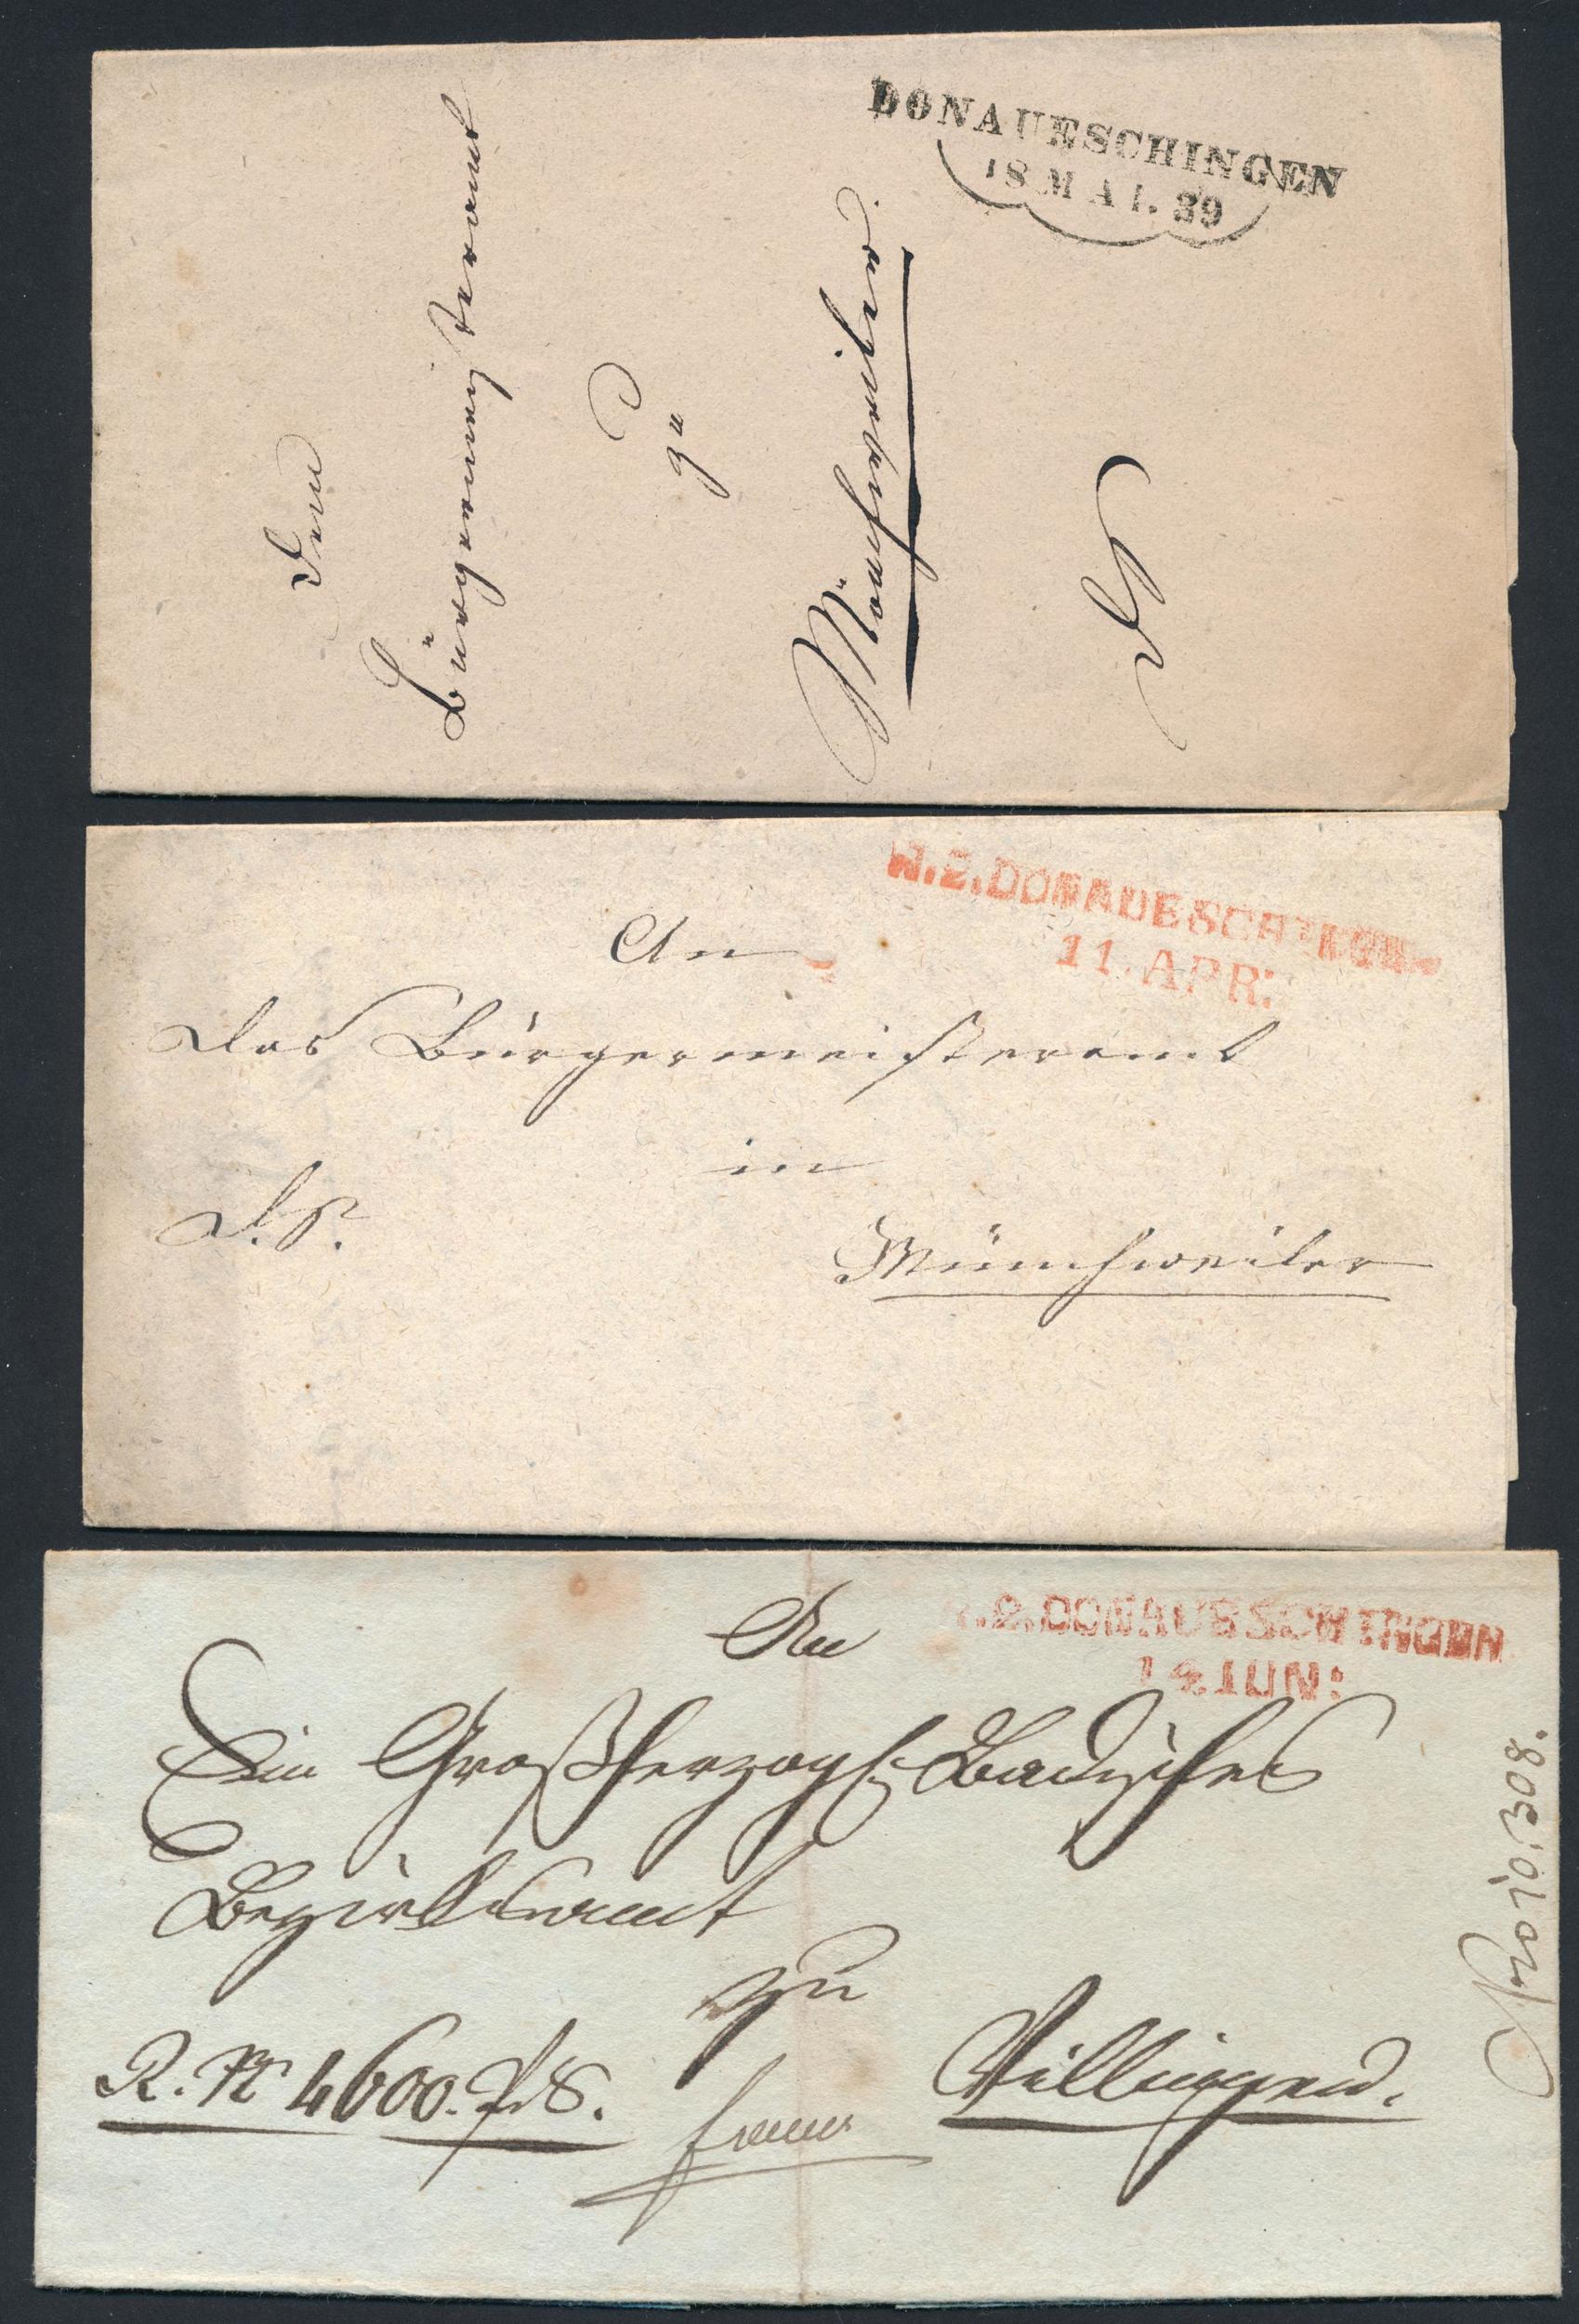 DONAUESCHINGEN
18 MAI. 39
Dem
Bürgermeisteramt
zu
Mönchweiler.
R.2.DONAUESCHINGEN
11. APR:
An
das Bürgermeisteramt
in
D.S.
Münchweiler
R.2.DONAUESCHINGEN
14 IUN:
An
Ein Großherzogl: Badisches
Bezirksamt
zu
R. Nr 4600. DS.
Villingen.
franco
Nro 10,308.